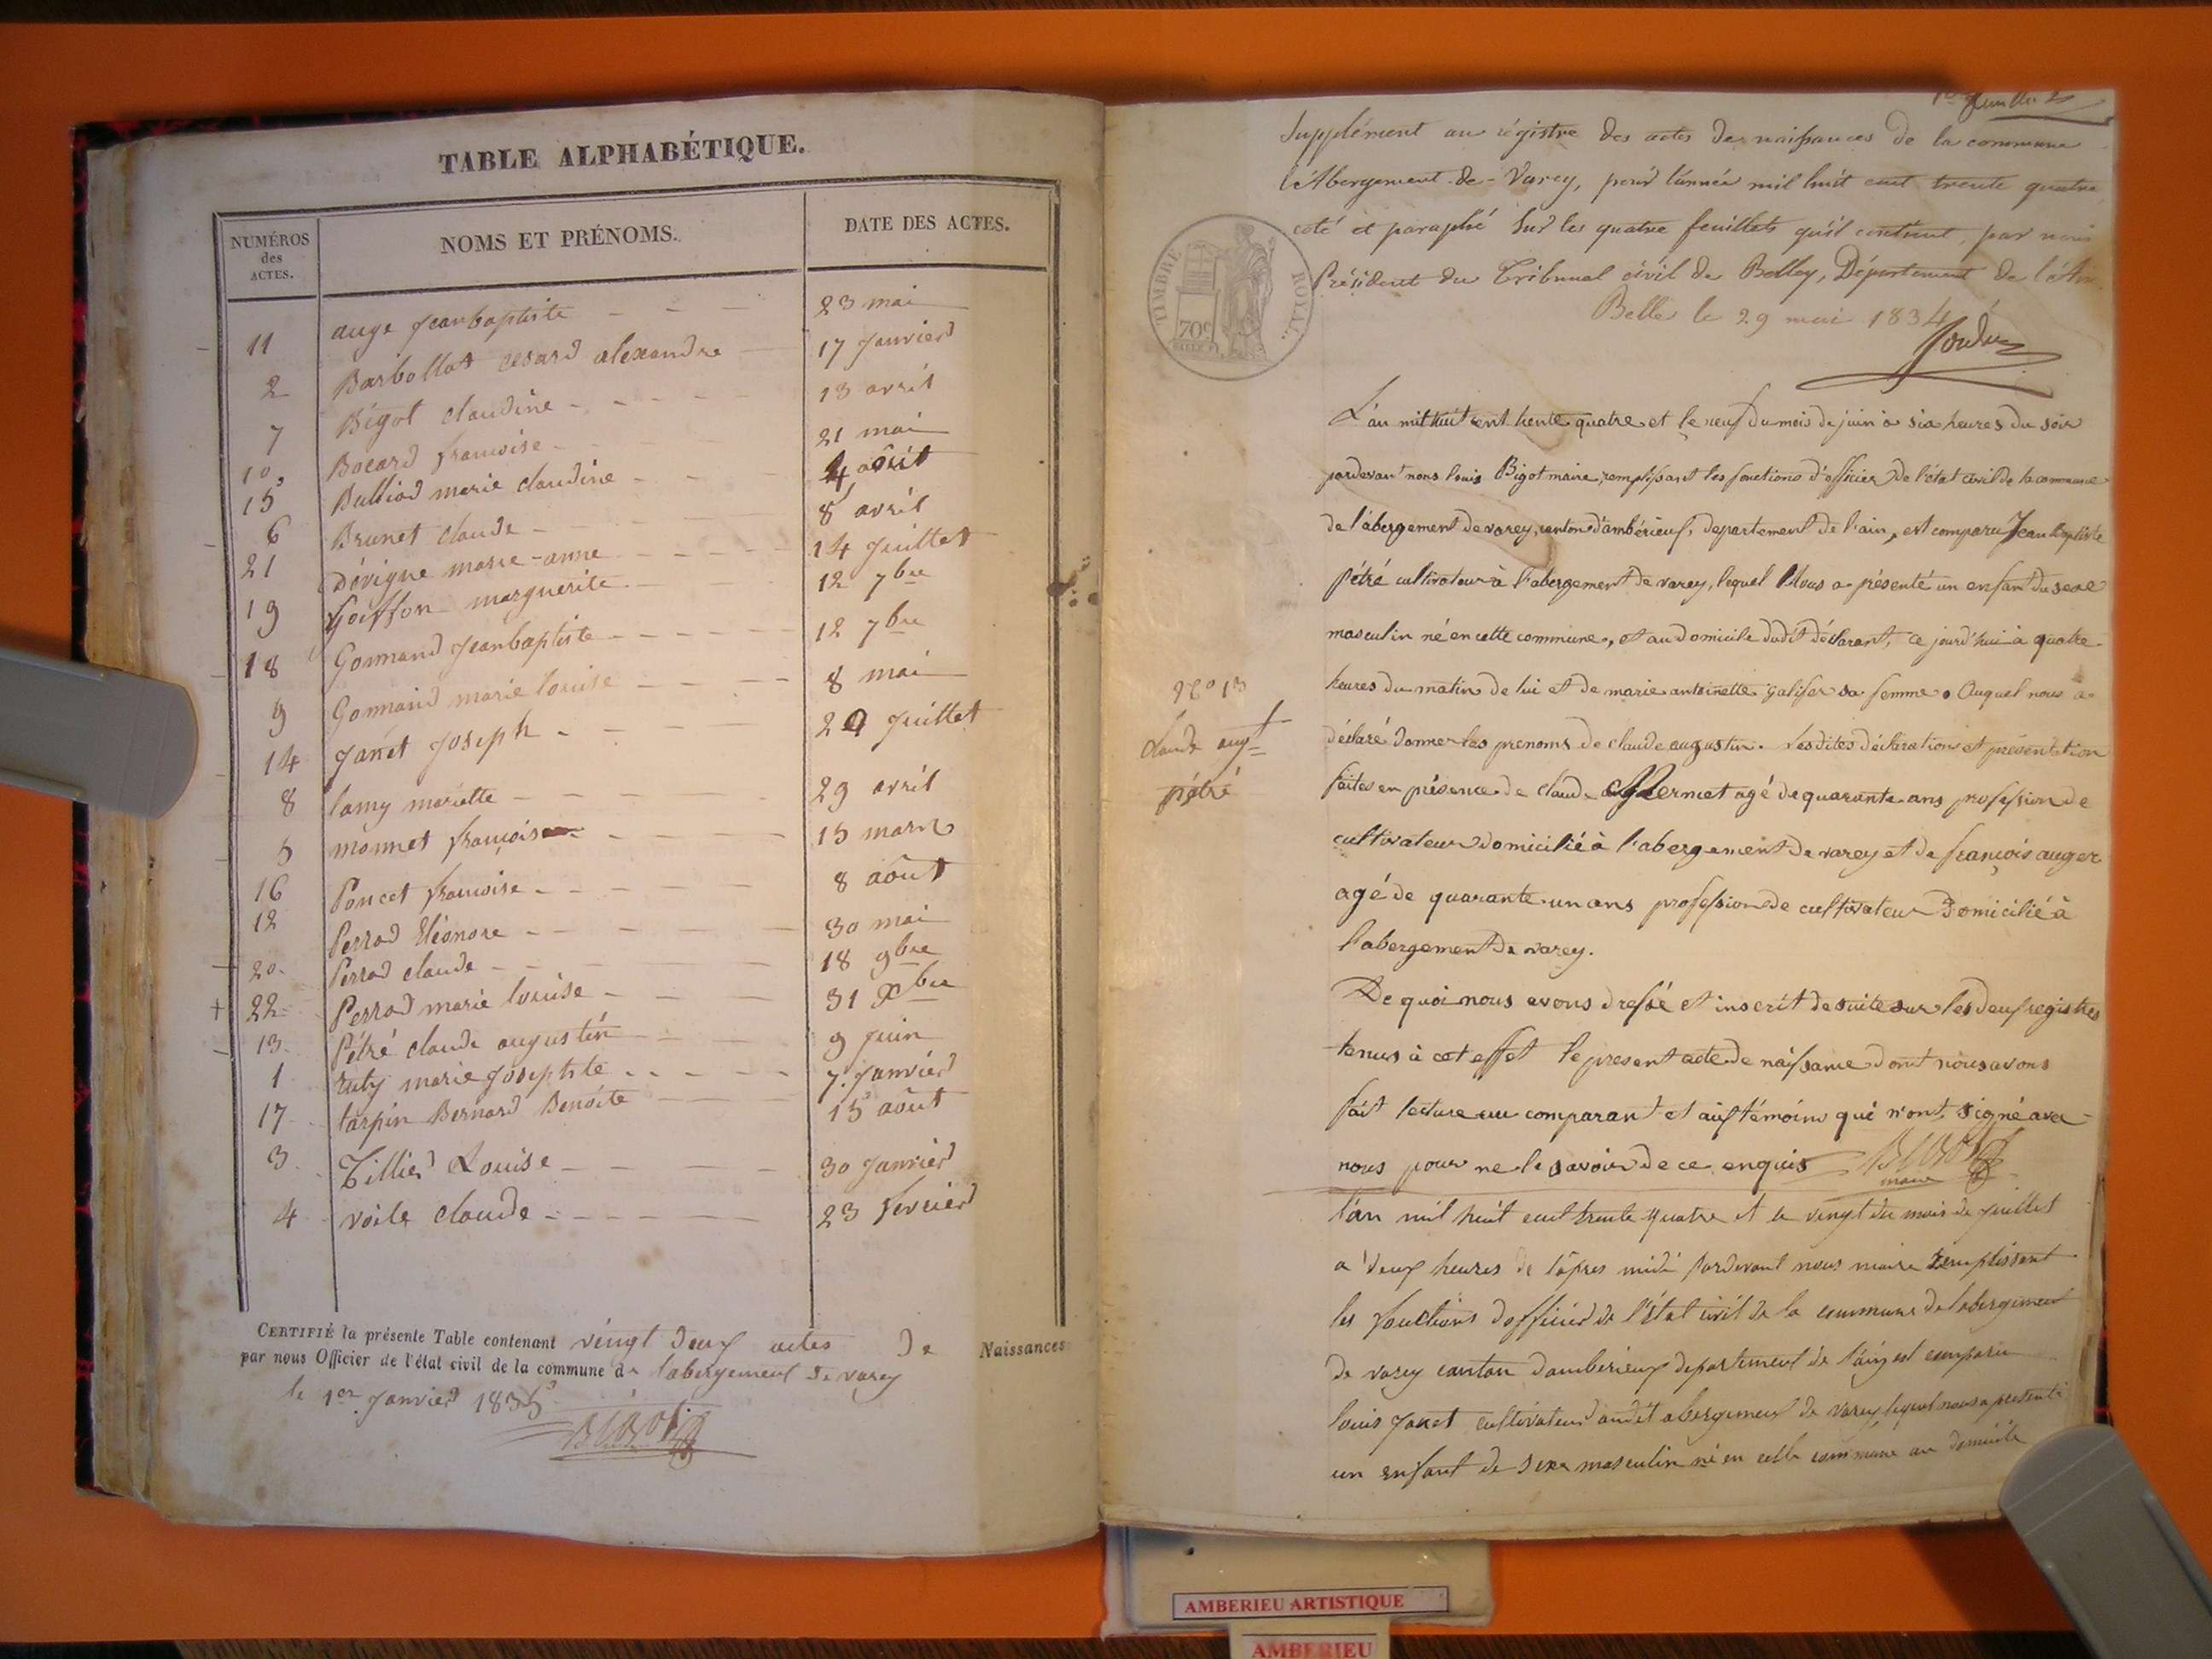 TABLE ALPHABÉTIQUE.
NUMÉROS des ACTES.
NOMS ET PRÉNOMS.
DATE DES ACTES.
11 auge Jean baptiste 23 mai
2 Barbollat cesard alexandre 17 Janvier
7 Bigot claudine 13 avril
10 Bocard francoise 21 mai
15 Bulliod marie claudine 4 août
6 Brunet claude 8 avril
21 Dévigne marie-anne 14 Juillet
19 Goiffon marguerite 12 7bre
18 Gonnand Jean baptiste 12 7bre
9 Gonnand marie louise 8 mai
14 Janet Joseph 20 Juillet
8 lamy mariette 29 avril
5 monnet francois 15 mars
16 Poncet francoise 8 août
12 Perrod Eléonore 30 mai
20 Perrod claude 18 9bre
22 Perrod marie louise 31 Xbre
13 Pétré claude augustin 9 Juin
1 ruty marie Josephte 7 Janvier
17 tarpin Bernard Benoite 15 août
3 Tillier Louise 30 Janvier
4 voile claude 23 fevrier
CERTIFIÉ la présente Table contenant vingt deux actes de Naissances
par nous Officier de l'état civil de la commune de labergement de varey
le 1er Janvier 1835
Bigot
1er feuillet
Supplément au régistre des actes de naissances de la commune
l'Abergement-de-Varey, pour l'année mil huit cent trente quatre
coté et paraphé sur les quatre feuillets qu'il contient, par nous
Président du Tribunal civil de Belley, Département de l'Ain.
Belley le 29 mai 1834
TIMBRE ROYAL.
70c
L'an mil huit cent trente quatre et le neuf du mois de juin à six heures du soir
pardevant nous louis Bigot maire, remplissant les fonctions d'officier de l'état civil de la commune
de l'abergement de varey, canton d'ambérieux, departement de l'ain, est comparu Jean Baptiste
pétré cultivateur à l'abergement de varey, lequel Nous a présenté un enfant du sexe
masculin né en cette commune, et au domicile dudit déclarant, ce jourd'hui à quatre
heures du matin de lui et de marie antoinette galifer sa femme. Auquel nous a
déclaré donner les prenoms de claude augustin. Lesdites déclaration et présentation
faites en présence de claude Mermet agé de quarante ans profession de
cultivateur domicilié à l'abergement de varey et de françois auger
agé de quarante un ans profession de cultivateur Domicilié à
l'abergement de varey.
De quoi nous avons dressé et inscrit de suite sur les deux registres
tenus à cet effet le present acte de naissance dont nous avons
fait lecture au comparant et aux témoins qui n'ont signé avec
nous pour ne le savoir de ce enquis Bigot
maire
N° 13
Claude augt
pétré
l'an mil huit cent trente quatre et le vingt du mois de juillet
a deux heures de l'apres midi pardevant nous maire remplissant
les fonctions d'officier de l'état civil de la commune de labergement
de varey canton d'amberieux departement de l'ain est comparu
louis Janet cultivateur audit abergement de varey lequel nous a presenté
un enfant de sexe masculin né en cette commune au domicile
AMBERIEU ARTISTIQUE
AMBERIEU